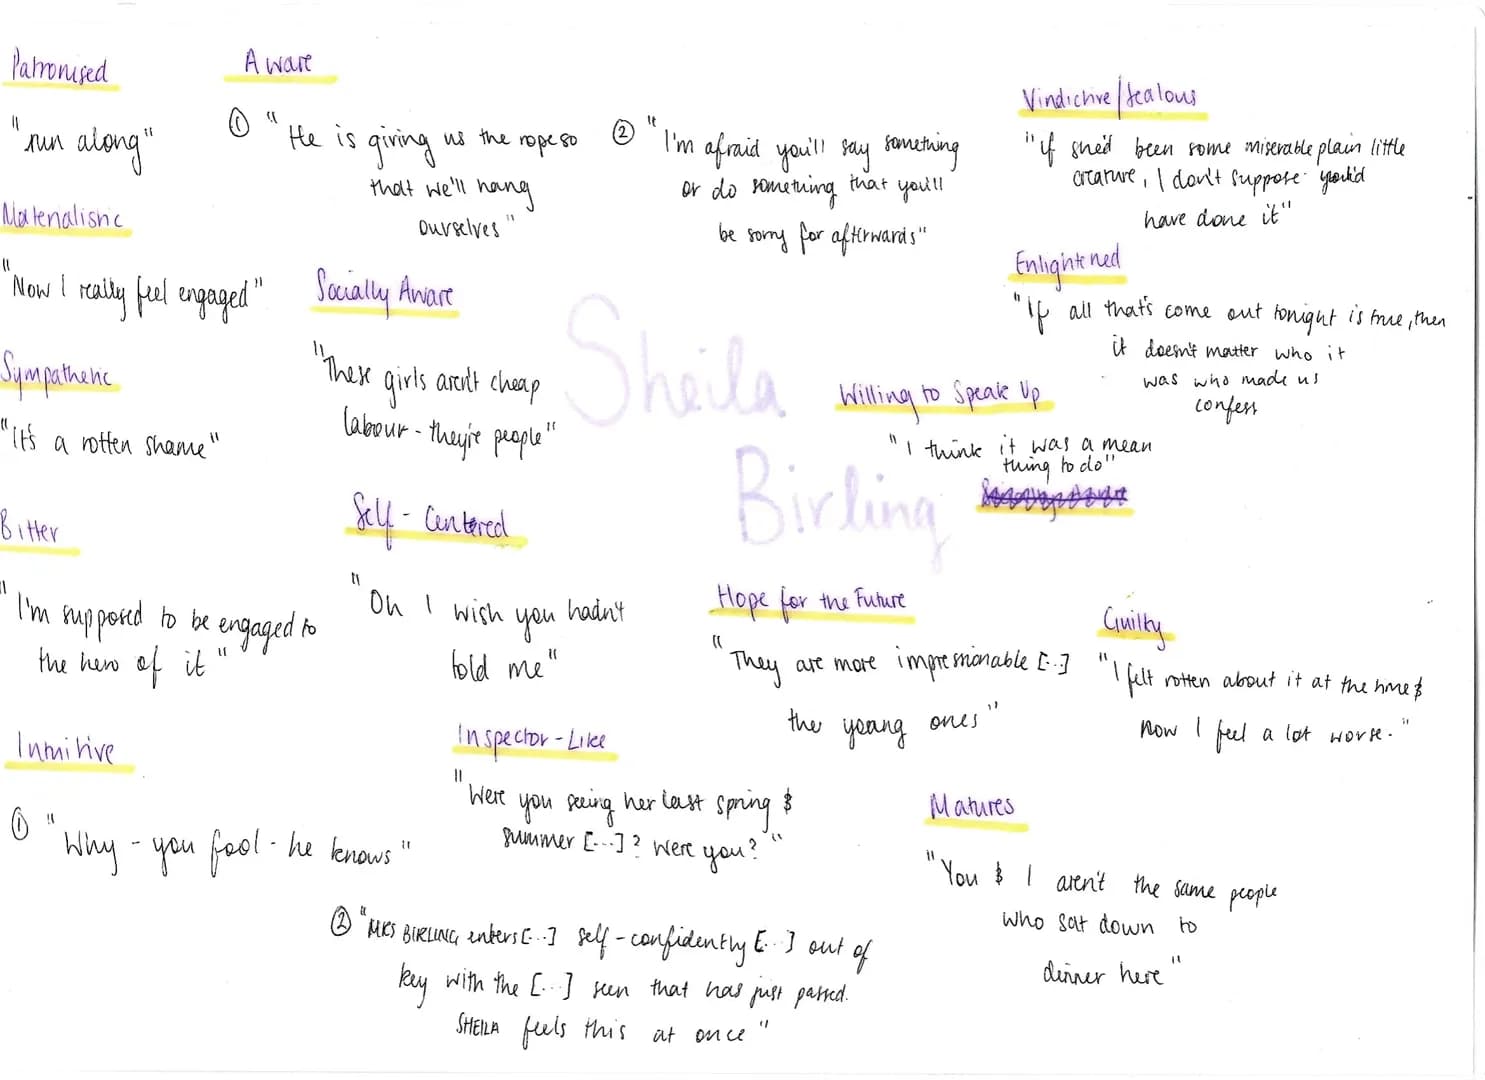 Patronised
"run along"
Aware
① "He is giving us the rope so
that we'll hang
ourselves"
② "I'm afraid you'll say something
or do something that you'll
be sorry for afterwards"
Vindictive/Jealous
"if she'd been some miserable plain little
creature, I don't suppose you'd
have done it"
Materialistic
"Now I really feel engaged"
Socially Aware
"These girls aren't cheap
labour - they're people"
Enlightened
"If all that's come out tonight is true, then
it doesn't matter who it
was who made us
confess
Sympathetic
"It's a rotten shame"
Sheila
Birling
Willing to Speak Up
"I think it was a mean
thing to do"
Bitter
"I'm supposed to be engaged to
the hero of it"
Self-Centered
"Oh I wish you hadn't
told me"
Hope for the Future
"They are more impressionable [...]
the young ones"
Guilty
"I felt rotten about it at the time &
now I feel a lot worse."
Intuitive
① "Why - you fool - he knows"
② "MRS BIRLING enters [...] self-confidently [...] out of
key with the [...] seen that has just passed.
SHEILA feels this at once"
Inspector-Like
"Were you seeing her last spring &
summer [...]? Were you?"
Matures
"You & I aren't the same people
who sat down to
dinner here"